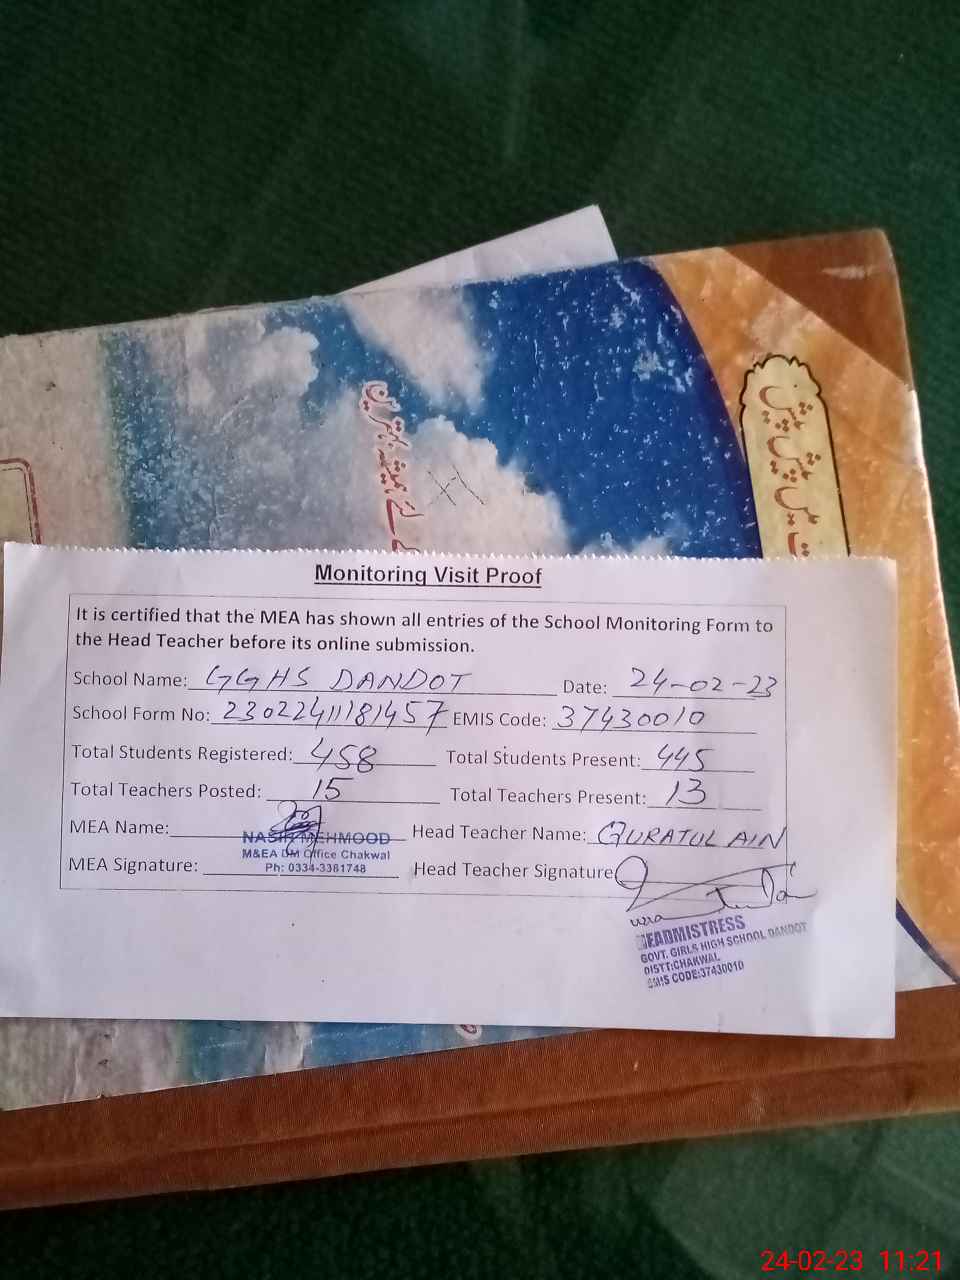 لئے ہمیشہ بہترین
میں پیش پیش
Monitoring Visit Proof
It is certified that the MEA has shown all entries of the School Monitoring Form to
the Head Teacher before its online submission.
School Name: GGHS DANDOT Date: 24-02-23
School Form No: 23022411181457 EMIS Code: 37430010
Total Students Registered: 458 Total Students Present: 445
Total Teachers Posted: 15 Total Teachers Present: 13
MEA Name: NASIR MEHMOOD Head Teacher Name: QURATUL AIN
M&EA DM Office Chakwal
Ph: 0334-3381748
MEA Signature: Head Teacher Signature
HEADMISTRESS
GOVT. GIRLS HIGH SCHOOL DANDOT
DISTT:CHAKWAL
CODE:37430010
24-02-23 11:21